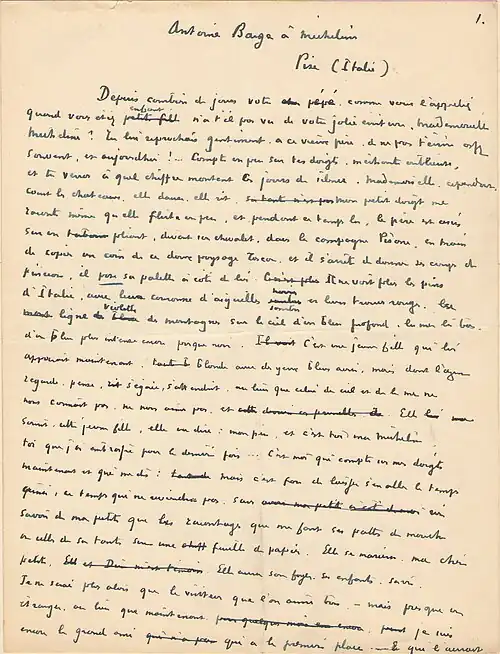 1.
Antoine Barga à Micheline
Pise (Italie)
Depuis combien de jours votre pépé, comme vous l'appeliez
quand vous étiez petite fille enfant n'a-t-il pas vu de votre jolie écriture, Mademoiselle
Micheline ? Tu lui reprochais gentiment, à ce vieux père, de ne pas t'écrire assez
souvent, et aujourd'hui !... Compte un peu sur tes doigts, méchante oublieuse,
et tu verras à quel chiffre montent les jours de silence. Mademoiselle, cependant,
court les châteaux, elle danse, elle rit, mon petit doigt me
raconte même qu'elle flirte un peu, et pendant ce temps là, le père est assis
sur un pliant, devant son chevalet, dans la campagne Pisane, en train
de copier un coin de ce doux paysage Toscan, et il s'arrête de donner ses coups de
pinceau, il pose sa palette à côté de lui. Il ne voit plus les pins
d'Italie, avec leur couronne d'aiguilles noires sombres et leurs troncs rouges. Une
ligne violette de montagnes sur le ciel d'un bleu profond, la mer là bas
d'un bleu plus intense encore presque noir. C'est une jeune fille qui lui
apparaît maintenant, blonde avec des yeux bleus aussi, mais dont l'azur
regarde, pense, s'égaie, s'attendrit, au lieu que celui du ciel et de la mer ne
nous connaît pas, ne nous aime pas, et Elle
sourit, cette jeune fille, elle va dire : mon papa, et c'est toi ma Micheline
toi que j'ai embrassée pour la dernière fois... C'est moi qui compte sur mes doigts
maintenant et qui me dis : mais c'est fou de laisser s'en aller le temps
ainsi, ce temps qui ne reviendra pas, sans rien
savoir de ma petite que les racontages que me font ses pattes de mouche
ou celles de sa tante sur une feuille de papier. Elle se mariera, ma chère
petite, Elle aura son foyer, ses enfants, sa vie
Je ne serai plus alors que le visiteur que l'on aime bien — mais presque un
étranger, au lieu que maintenant, je suis
encore le grand ami qui a la première place. — Et que l'aurait